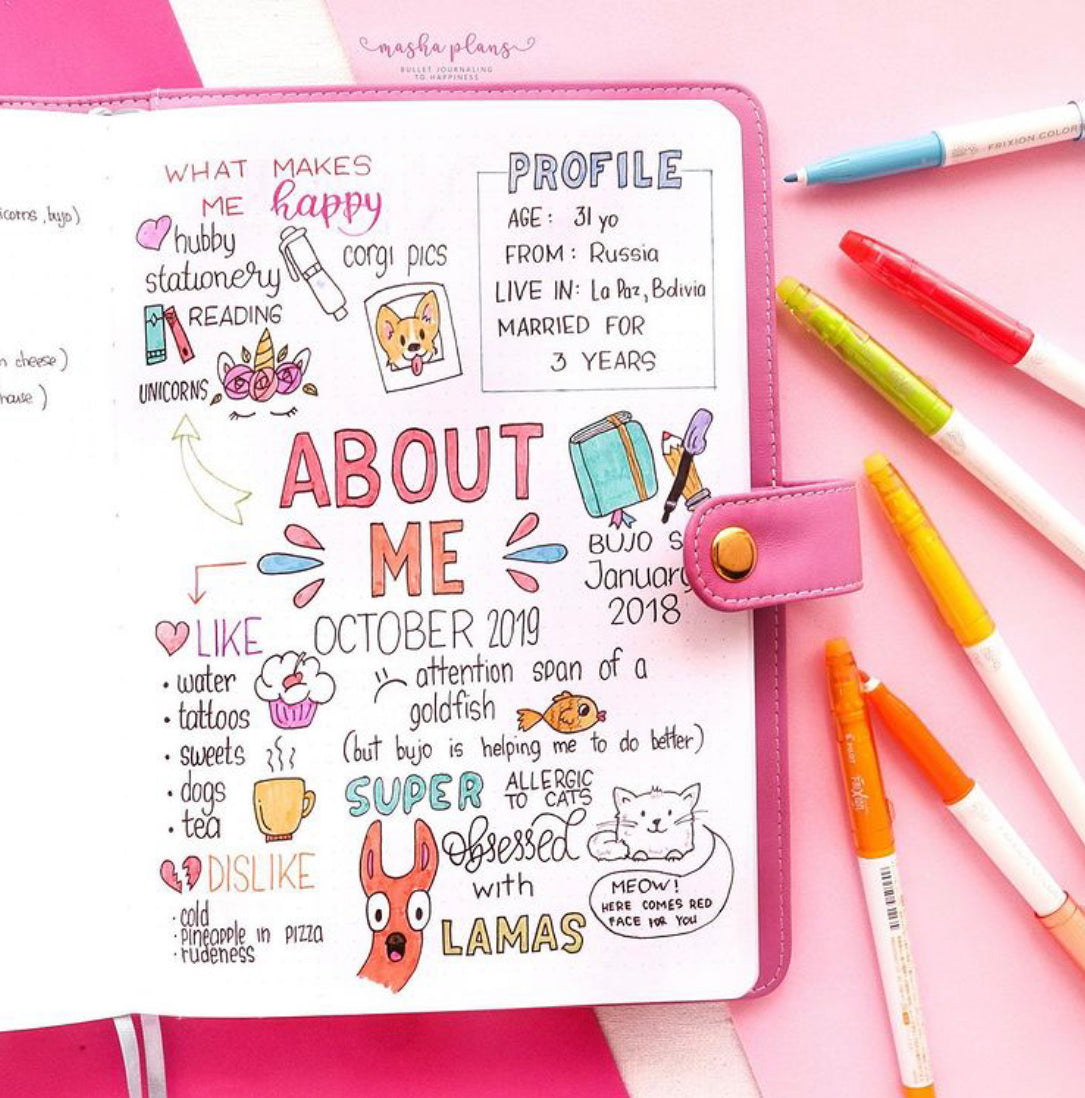 masha plans
BULLET JOURNALING
TO HAPPINESS
, bujo)
cheese)
WHAT MAKES
ME happy
hubby
stationery
corgi pics
READING
UNICORNS
PROFILE
AGE: 31 yo
FROM: Russia
LIVE IN: La Paz, Bolivia
MARRIED FOR
3 YEARS
ABOUT
ME
OCTOBER 2019
BUJO S
January
2018
LIKE
• water
• tattoos
• sweets
• dogs
• tea
DISLIKE
• cold
• pineapple in PIZZA
• rudeness
attention span of a
goldfish
(but bujo is helping me to do better)
SUPER ALLERGIC
TO CATS
obsessed
with
LAMAS
MEOW!
HERE COMES RED
FACE FOR YOU
FRIXION COLORS
PILOT FriXion